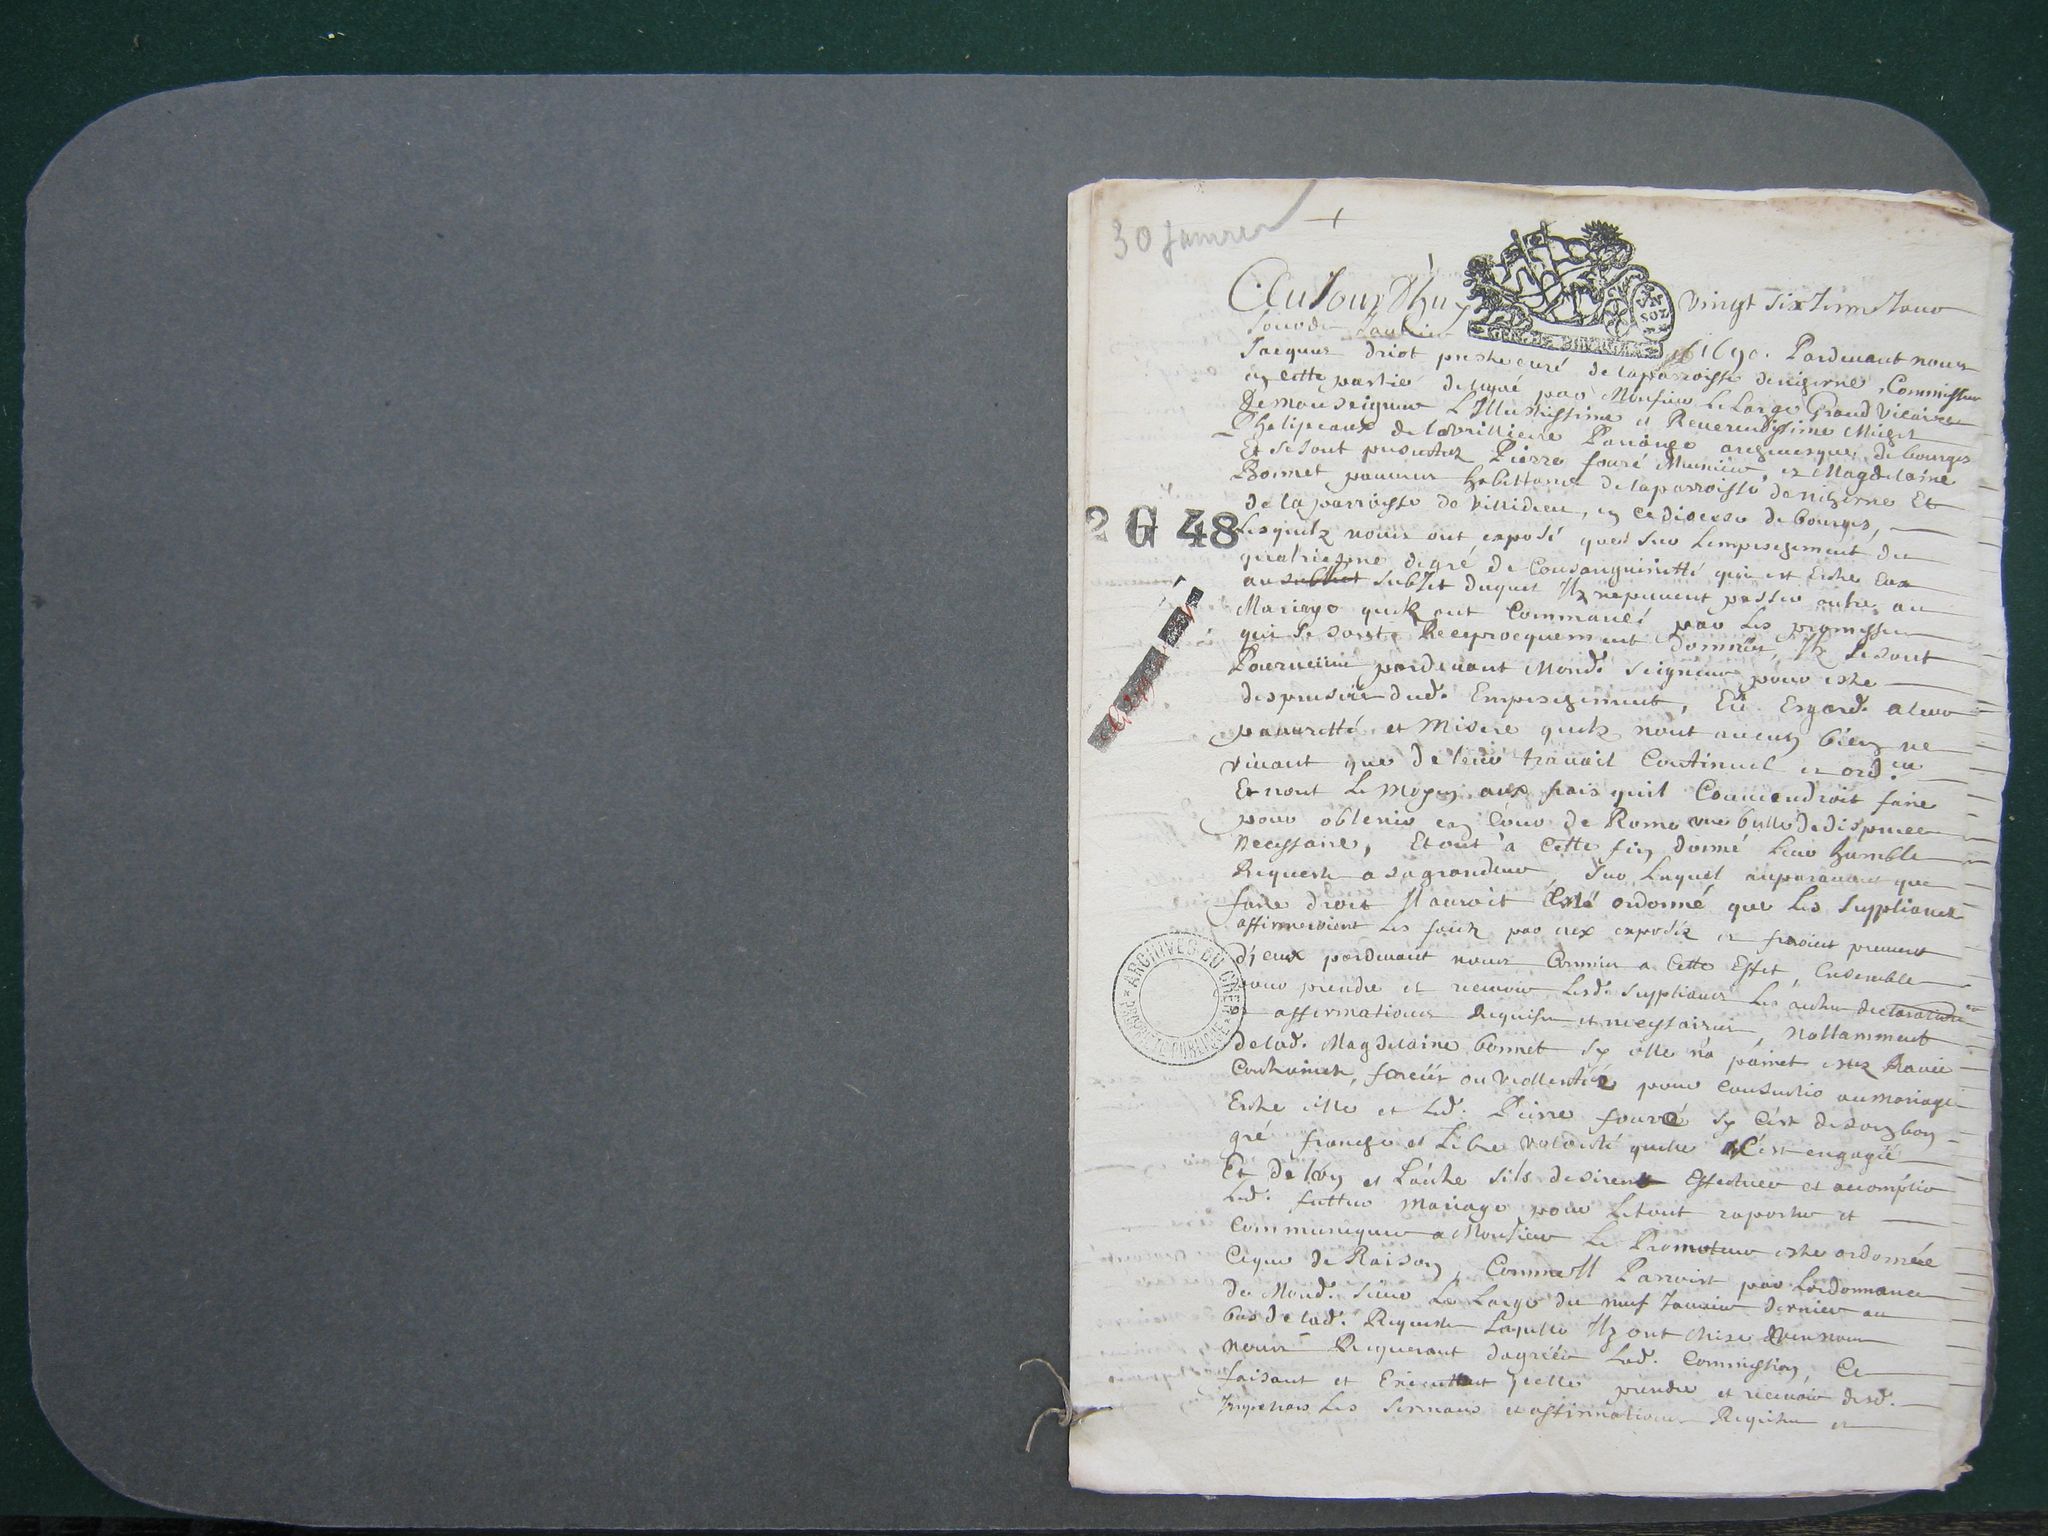 30 Janvier
+
Au Jourd'huy vingt sixiesme Jour
Jour de Janvier 1690. Pardevant nous
Jacques driot prestre curé de laparroisse denizerne, Commissre
en cette partie delegué par Monsieur Le Large Grand Vicaire
de monseigneur L'Illustrissime et Reverendissime Michel
Phelipeaux de lavrilliere Patriarge archevesque de bourges
Et se sont presentez Pierre fouré Munier, et Magdelaine
Bonnet pauvres habittans de laparroisse de nizerne Et
de la parroisse de Villidieu, en ce diocese de bourges,
2 G 48
Lesquelz nous ont exposé que sur Lempeschement du
quatriesme degré de Consanguinitté qui est Entre Eux
au subject subJet duquel Ilz nepeuvent passer outre au
Mariage quilz ont Commancé par Les promesses
qui se sont Reciprocquement données, Ilz se sont
Pourveüus pardevant Mond. Seigneur pour estre
dispensés dud. Empeschement, Eu Esgard. a leur
pauvretté et Misere quilz nont aucung bien ne
vivant que de leur travail Continuel et ord.re
Et nont Le moyen aux frais quil Conviendroit faire
pour obtenir en Cour de Rome une bulle de dispence
necessaire, Et ont à Cette fin donné Leur humble
Requeste a sa grandeur, Sur Laquel auparavant que
faire droit Il auroit Esté ordonné que Les supplians
affirmeroient Les faitz par eux exposéz et feroient preuves
d'jceux pardevant nous Commis a Cette Effet, Ensemble
pour prendre et recevoir Lesd. supplians Les autres declarations
affirmations Requises et necessaires, Nottamment
de lad. Magdelaine bonnet sy elle na point estez Ravie
Contrainte, forcée ou viollentée pour Consentir au mariage
Entre elle et led. Pierre fouré sy C'est de son bon
gré franche et Libre volonté quelle s'C'est engagée
Et de l'un et L'autre s'ils desirent Effectuer et accomplir
Led. futtur Mariage pour Le tout raporter et
Communiquer a Monsieur Le Promoteur estre ordonnée
Ce que de Raison, Comme Il Paroist par Lordonnance
de Mond. Sieur Le Large du neuf Janvier dernier au
bas de lad. Requeste Laquelle Ilz ont Mise devers nous
nous Requerant dagréer Lad. Commission Ce
faisant et Executtant jcelle prendre et recevoir desd.
Impetrans Les sermans et affirmations Requises et
ARCHIVES DU CHER